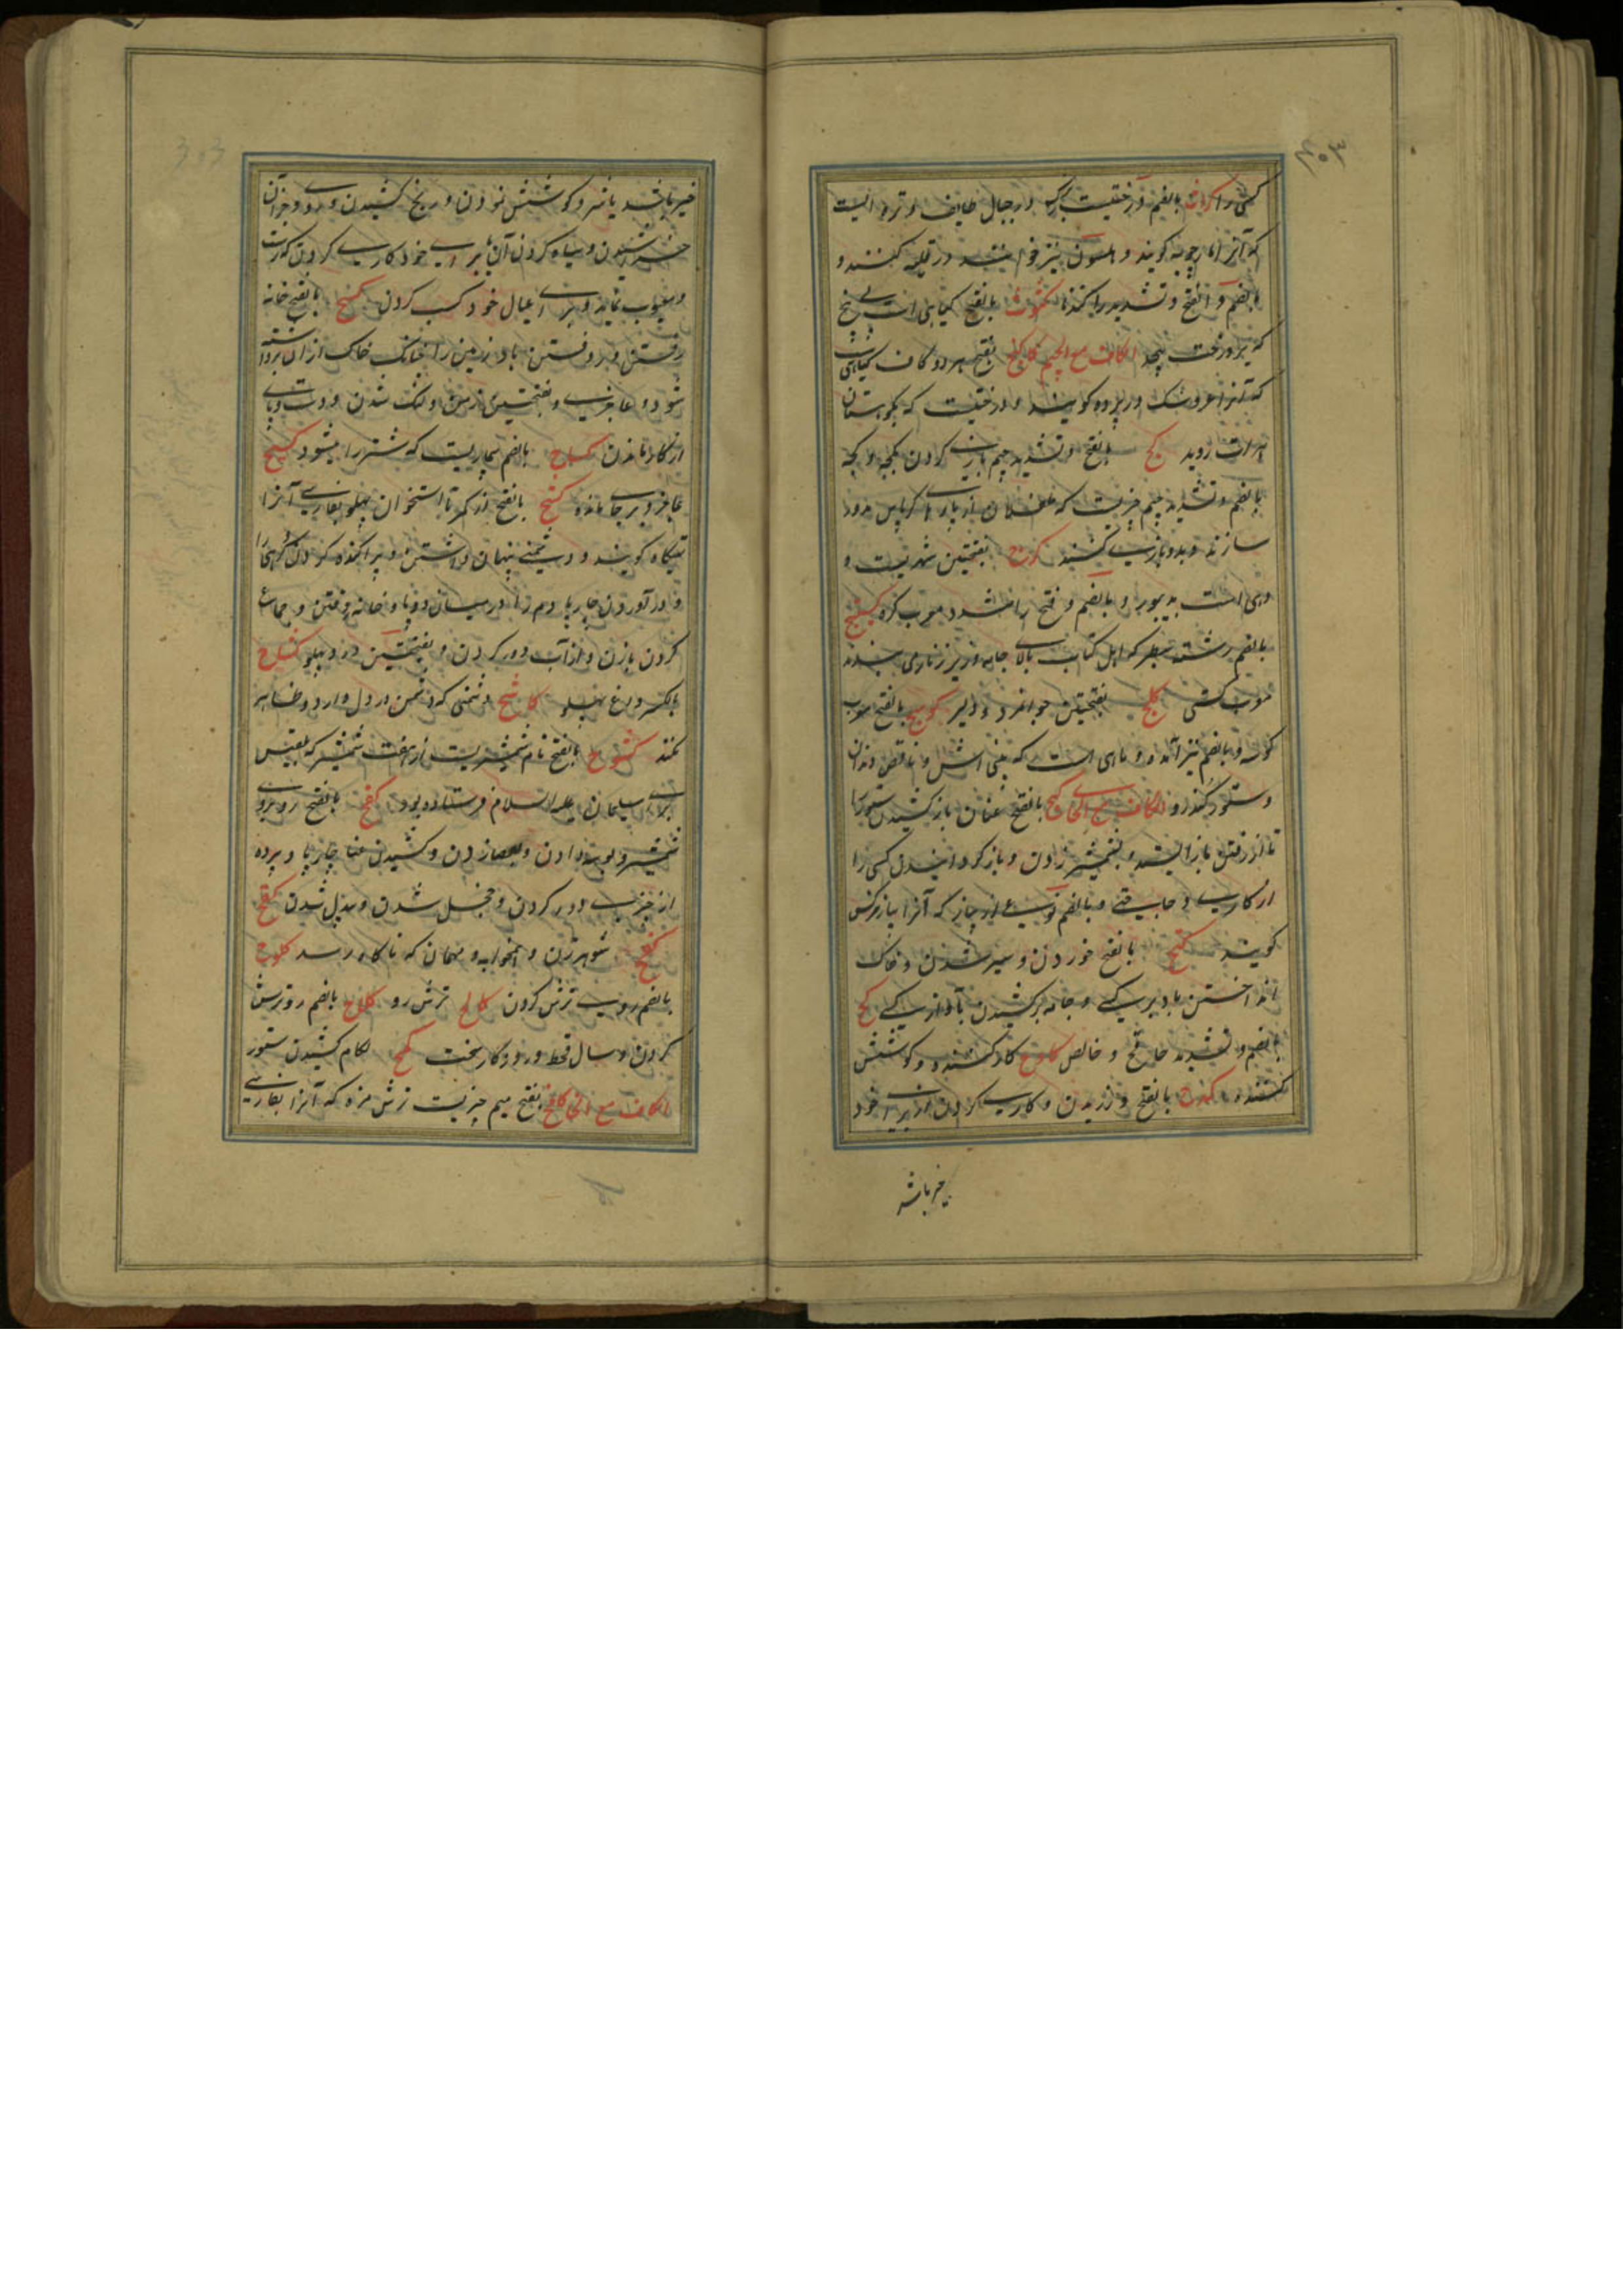 ۳۰۳
کسی را کراث بالضم درختیست بزرگ در جبال طایف و تره ایست
که آنرا مارچوبه گویند و هلیون نیز خوانند در قلیه کنند و
بالضم و الفتح و تشدید را گندنا کشوث بالفتح گیاهی است بی بیخ
که بر درخت پیچد الکاف مع الجیم کاکنج بفتح هر دو کاف گیاهیست
که آنرا عروسک در پرده گویند و درختیست که بکوهستان
هرات روید کج بالفتح و تشدید جیم بازی کردن بکجه و کجه
بالضم و تشدید جیم چیزیست که طفلان از پارهای کرباس مدور
سازند و بدو بازی کنند کرج بفتحتین شهریست و
دهی است بدینور و بالضم و فتح را مشدد معرب کره کستیج
بالضم رشته سطبر که اهل کتاب بالای جامه و زیر زنار می بندند
معرب کستی کلج بفتحتین جوانمرد و دلیر کوسج بالفتح معرب
کوسه و بالضم نیز آمده و ماهی است که بینی اش و ناقص دندان
و ستور کندرو الکاف مع الحای کبح بالفتح عنان باز کشیدن ستور را
تا از رفتن باز ایستد و بشمشیر زدن و باز گردانیدن کسی را
از کاری و حاجتی و بالضم نوعی از پیاز که آنرا پیاز نرگس
گویند کثح بالفتح خوردن و سیر شدن و خاک
انداختن باد بر کسی و جامه برکشیدن باد از کسی کح
بالضم و تشدید حا قح و خالص کادح کار کننده و کوشش
کننده کدح بالفتح ورزیدن و کاری کردن از برای خود
خیر باشد
303
خیر باشد یا شر و کوشش نمودن و رنج کشیدن و روی و جز آن
خراشیدن و سیاه کردن آن یا برای خود کاری کردن که زشت
و معیوب نماید و برای عیال خود کسب کردن کسح بالفتح خانه
رفتن و روفتن باد زمین را چنانکه خاک از آن برداشته
شود و عاجزی و بفتحتین زمین و لنگ شدن و دست و پای
از کار ماندن کساح بالضم بیماریست که شتر را میشود کسیح
عاجز و بر جا مانده کشح بالفتح از کمر تا استخوان پهلو بفارسی آنرا
تهیگاه گویند و دشمنی پنهان داشتن و پراکنده کردن گروهی را
و در آوردن چارپا دم را در میان دو پا و خانه رفتن و جماع
کردن با زن و از آب دور کردن و بفتحتین درد پهلو کشاح
بالکسر داغ پهلو کاشح دشمنی که دشمن در دل دارد و ظاهر
نکند کشوح بالفتح نام شمشیریست از هفت شمشیر که بلقیس
برای سلیمان علیه السلام فرستاده بود کفح بالفتح روبروی
شمشیر و بوسه دادن و بعصا زدن و کشیدن عنان چارپا و پرده
از چیزی دور کردن و خجل شدن و بددل شدن کفح
کفیح شوهر زن و همخوابه و مهمان که ناگاه رسد کلوح
بالضم روی ترش کردن کالح ترش رو کلاح بالضم رو ترش
کردن و سال قحط و روزگار سخت کمح لگام کشیدن ستور
الکاف مع الخا کامخ بفتح میم چیزیست ترش مزه که آنرا بفارسی